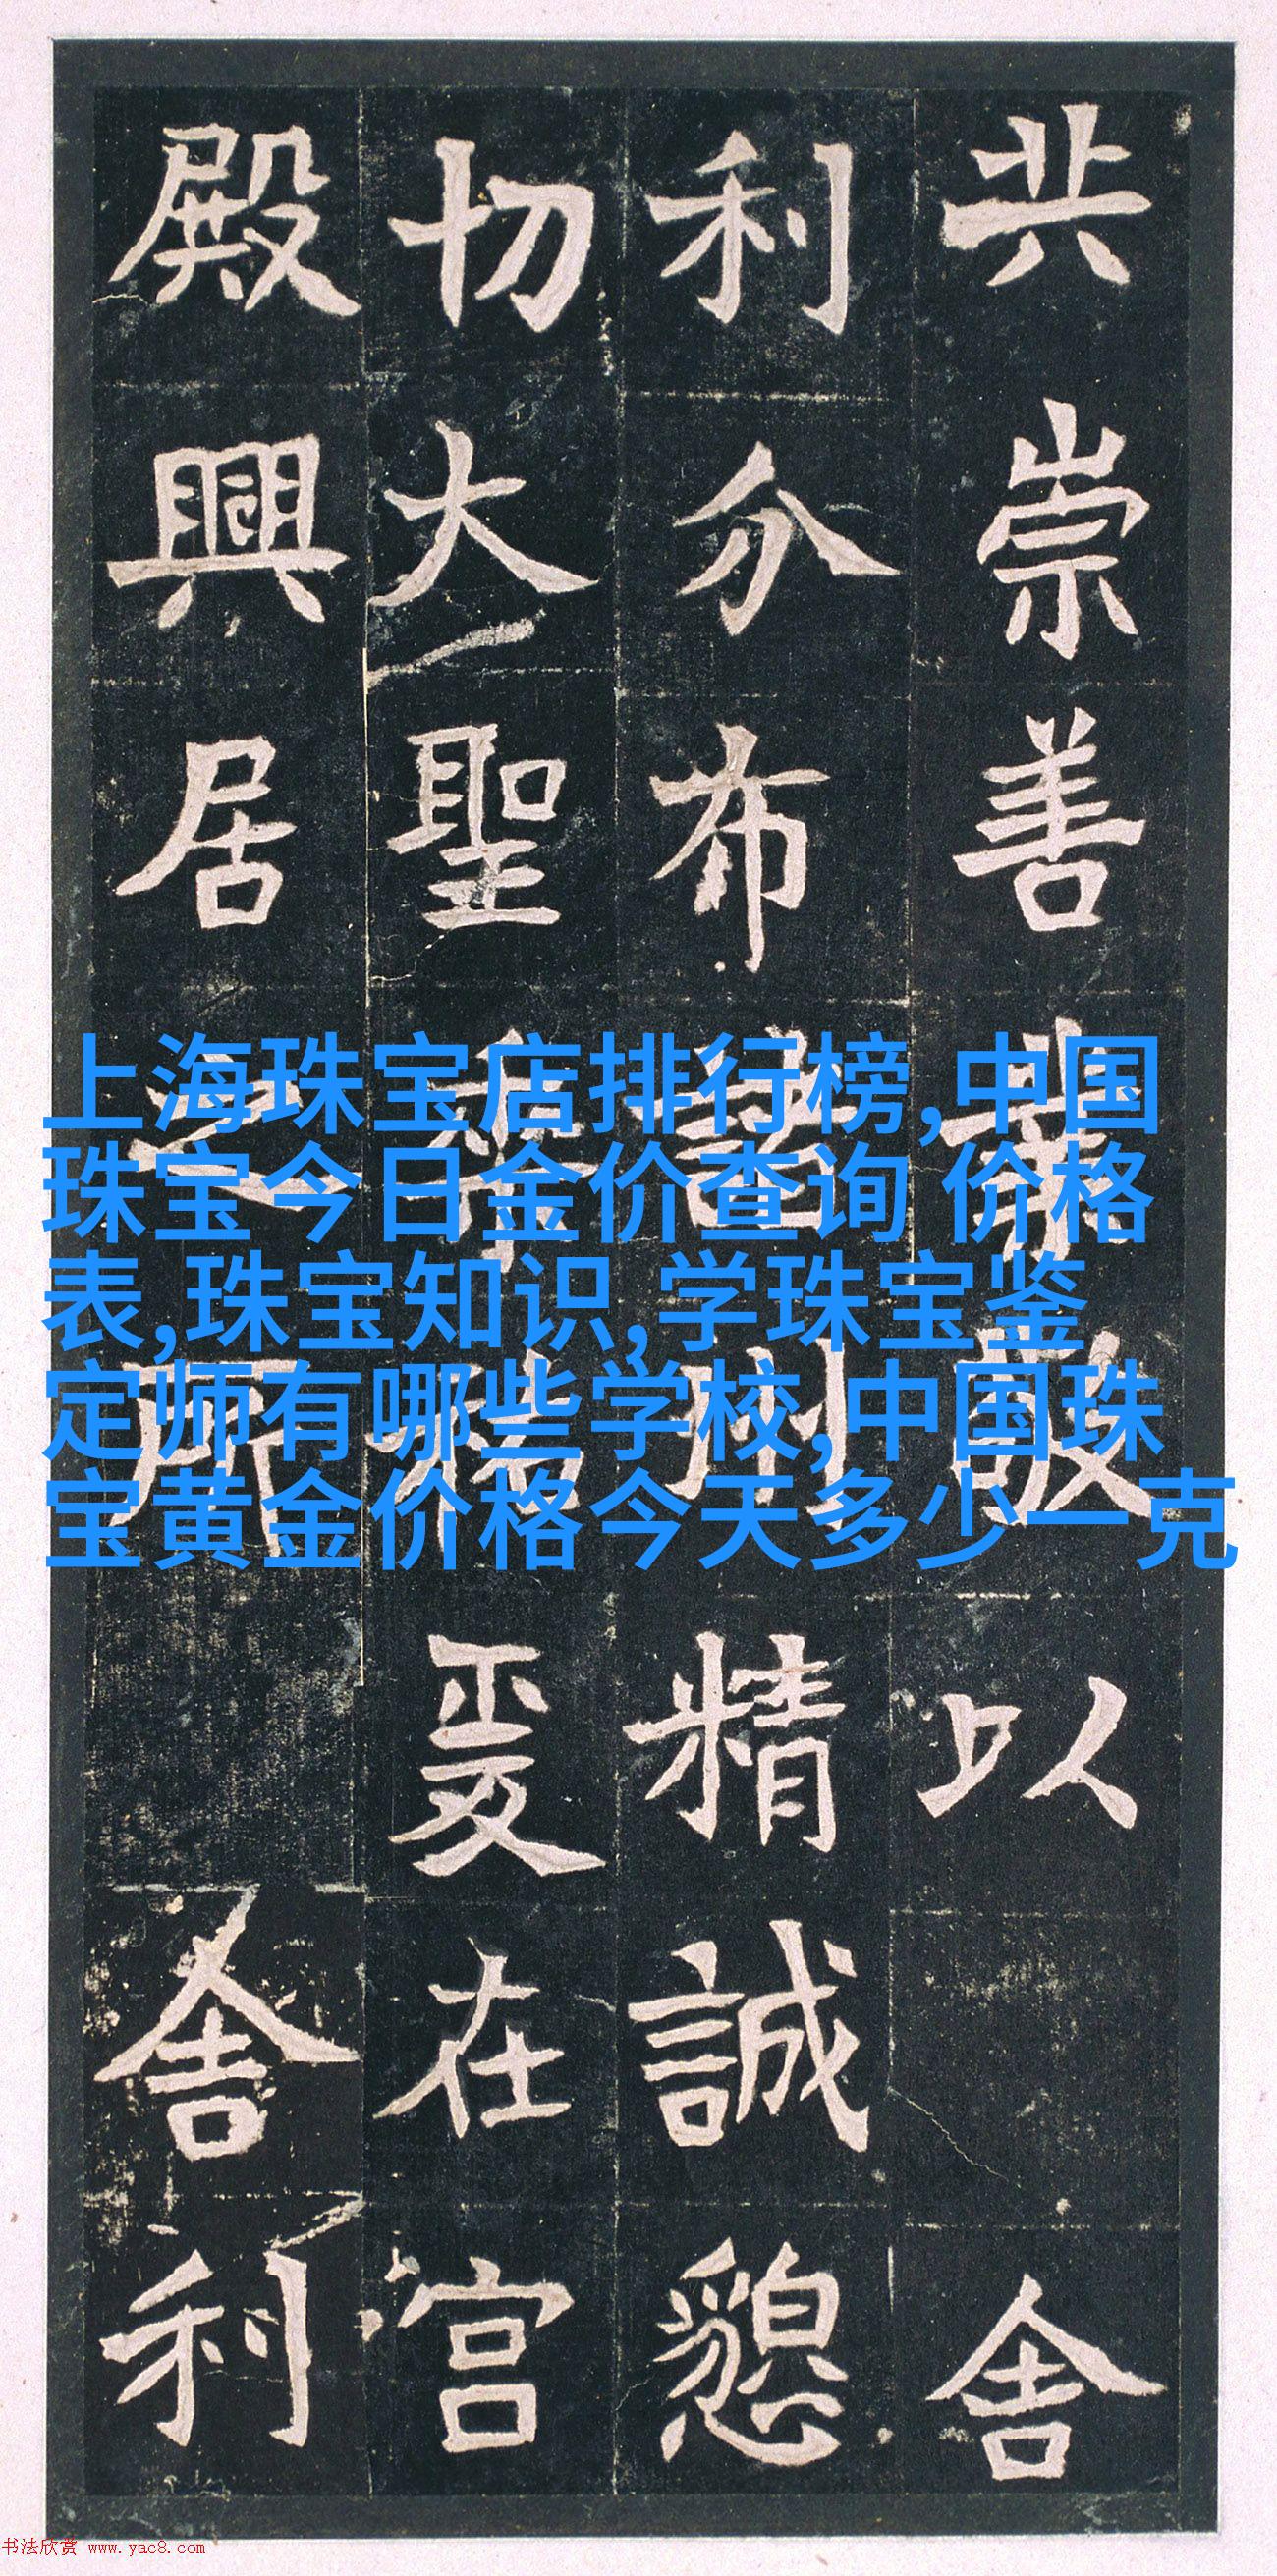 共崇善業敬以舍
利分布諸州精誠懇
切大聖福爰在宫
殿興居之所舍利
上海珠宝店排行榜,中国
珠宝今日金价查询 价格
表,珠宝知识,学珠宝鉴
定师有哪些学校,中国珠
宝黄金价格今天多少一克
书法欣赏 www.yac8.com